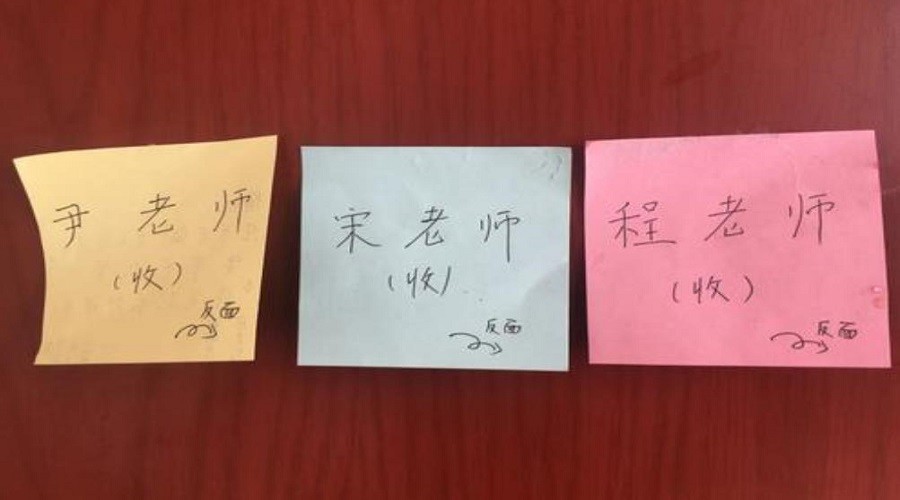 尹老师
（收）
反面
宋老师
（收）
反面
程老师
（收）
反面